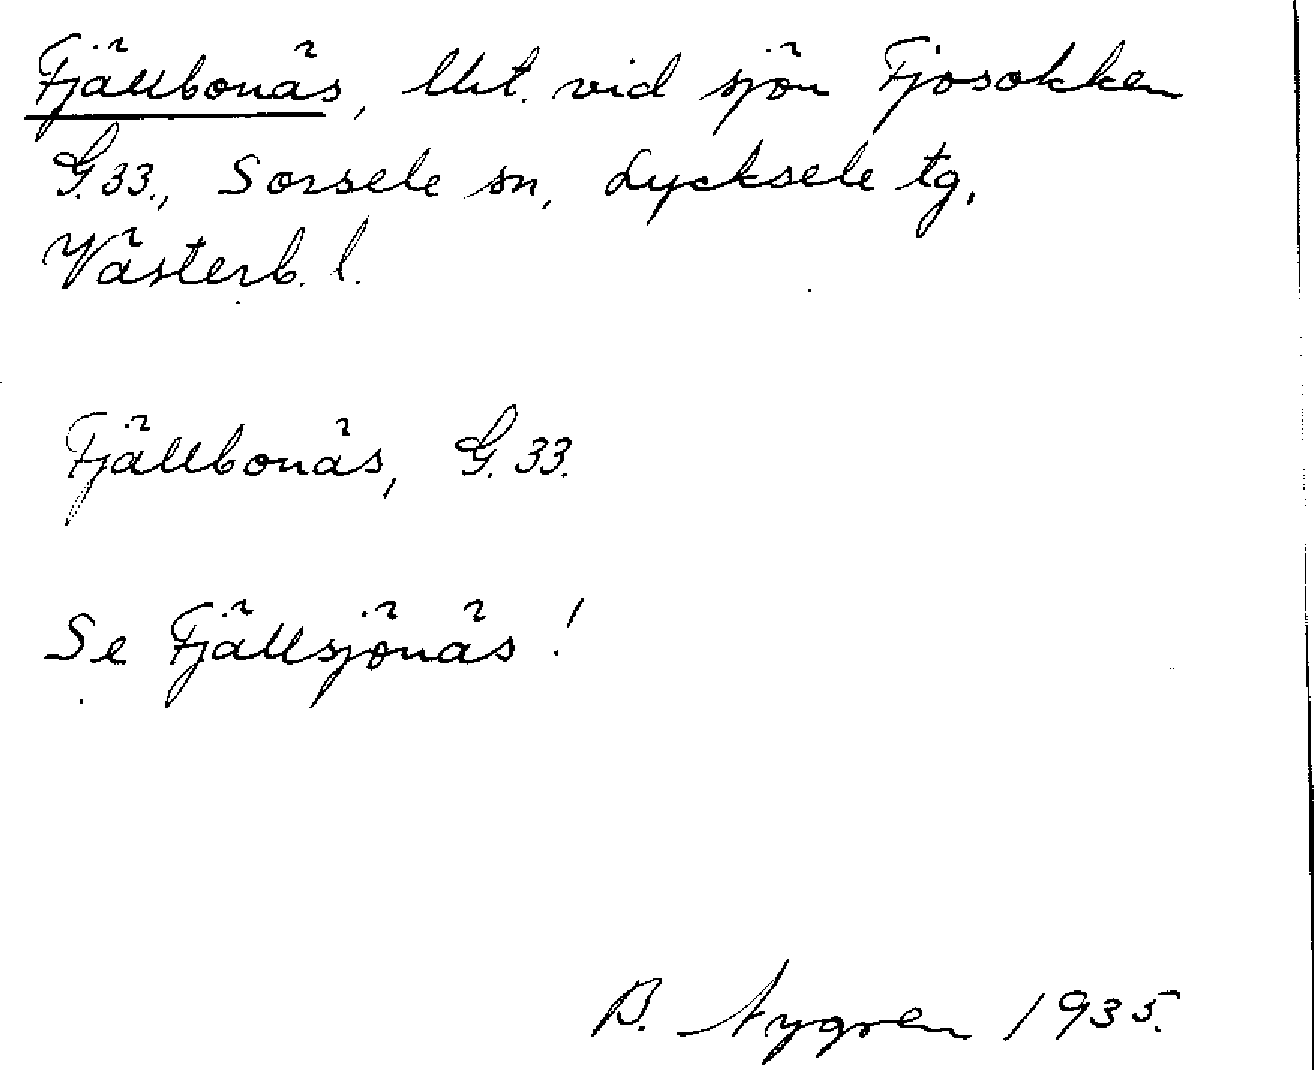 Fjällbonäs, lht. vid sjön Fjosokken
G.33., Sorsele sn, Lycksele tg,
Västerb. l.
Fjällbonäs, G. 33.
Se Fjällsjönäs!
B. Nygren 1935.